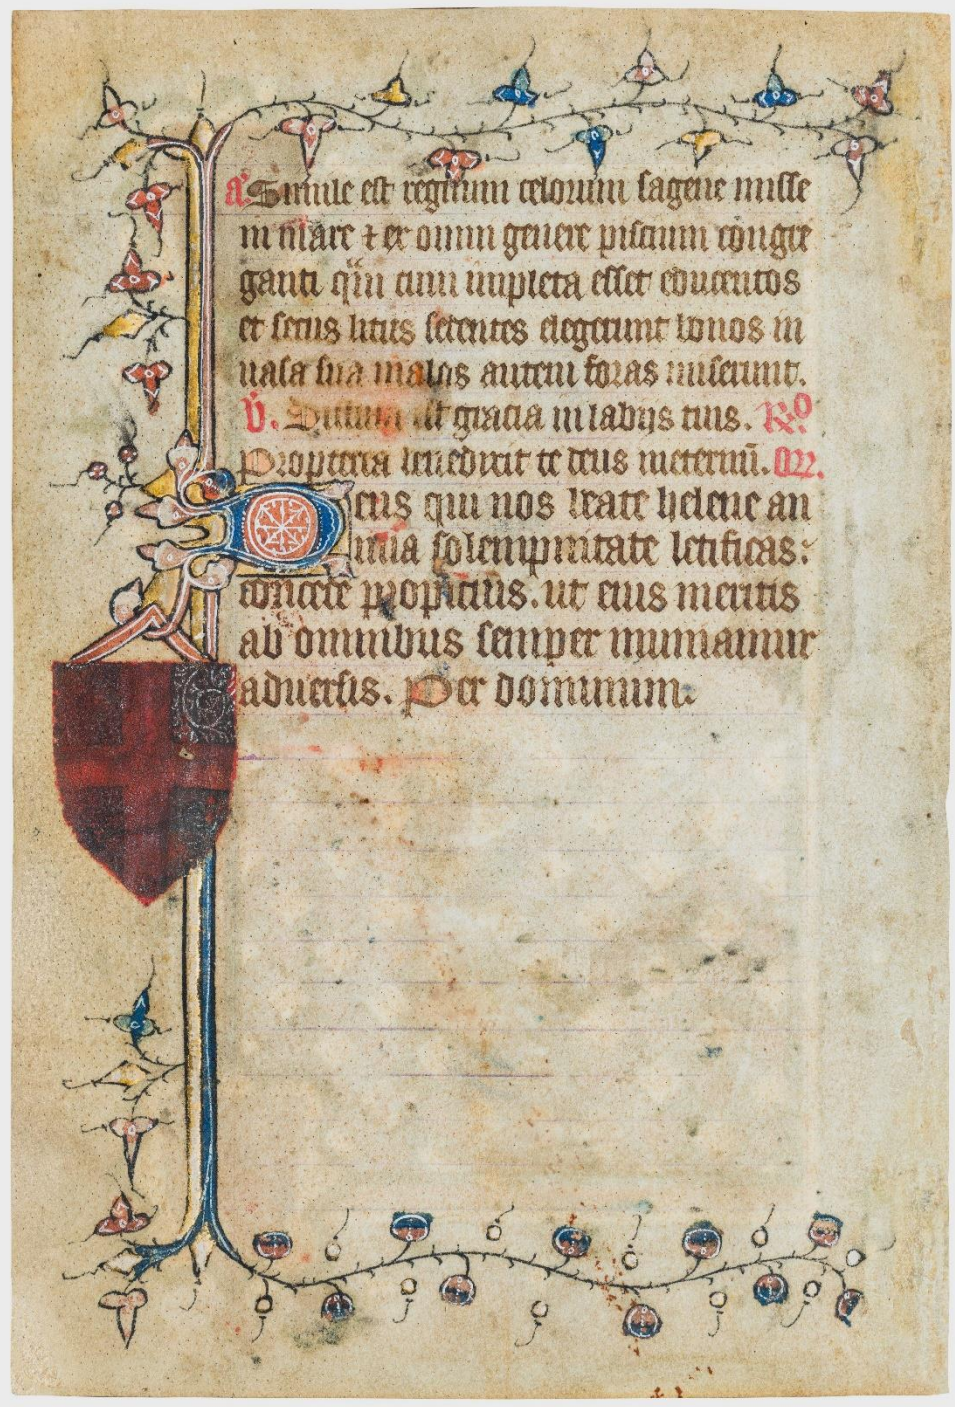 a Simile est regnum celorum sagene misse
in mare ⁊ ex omni genere piscium congre
ganti qm̄ cum impleta esset educentes
et secus litus sedentes elegerunt bonos in
uasa sua malos autem foras miserunt.
V. Diffusa est gracia in labijs tuis. Ro
Propterea benedixit te deus ineternū. Or.
Deus qui nos beate helene an
nua solempnitate letificas:
concede propicius. ut eius meritis
ab omnibus semper muniamur
aduersis. Per dominum.